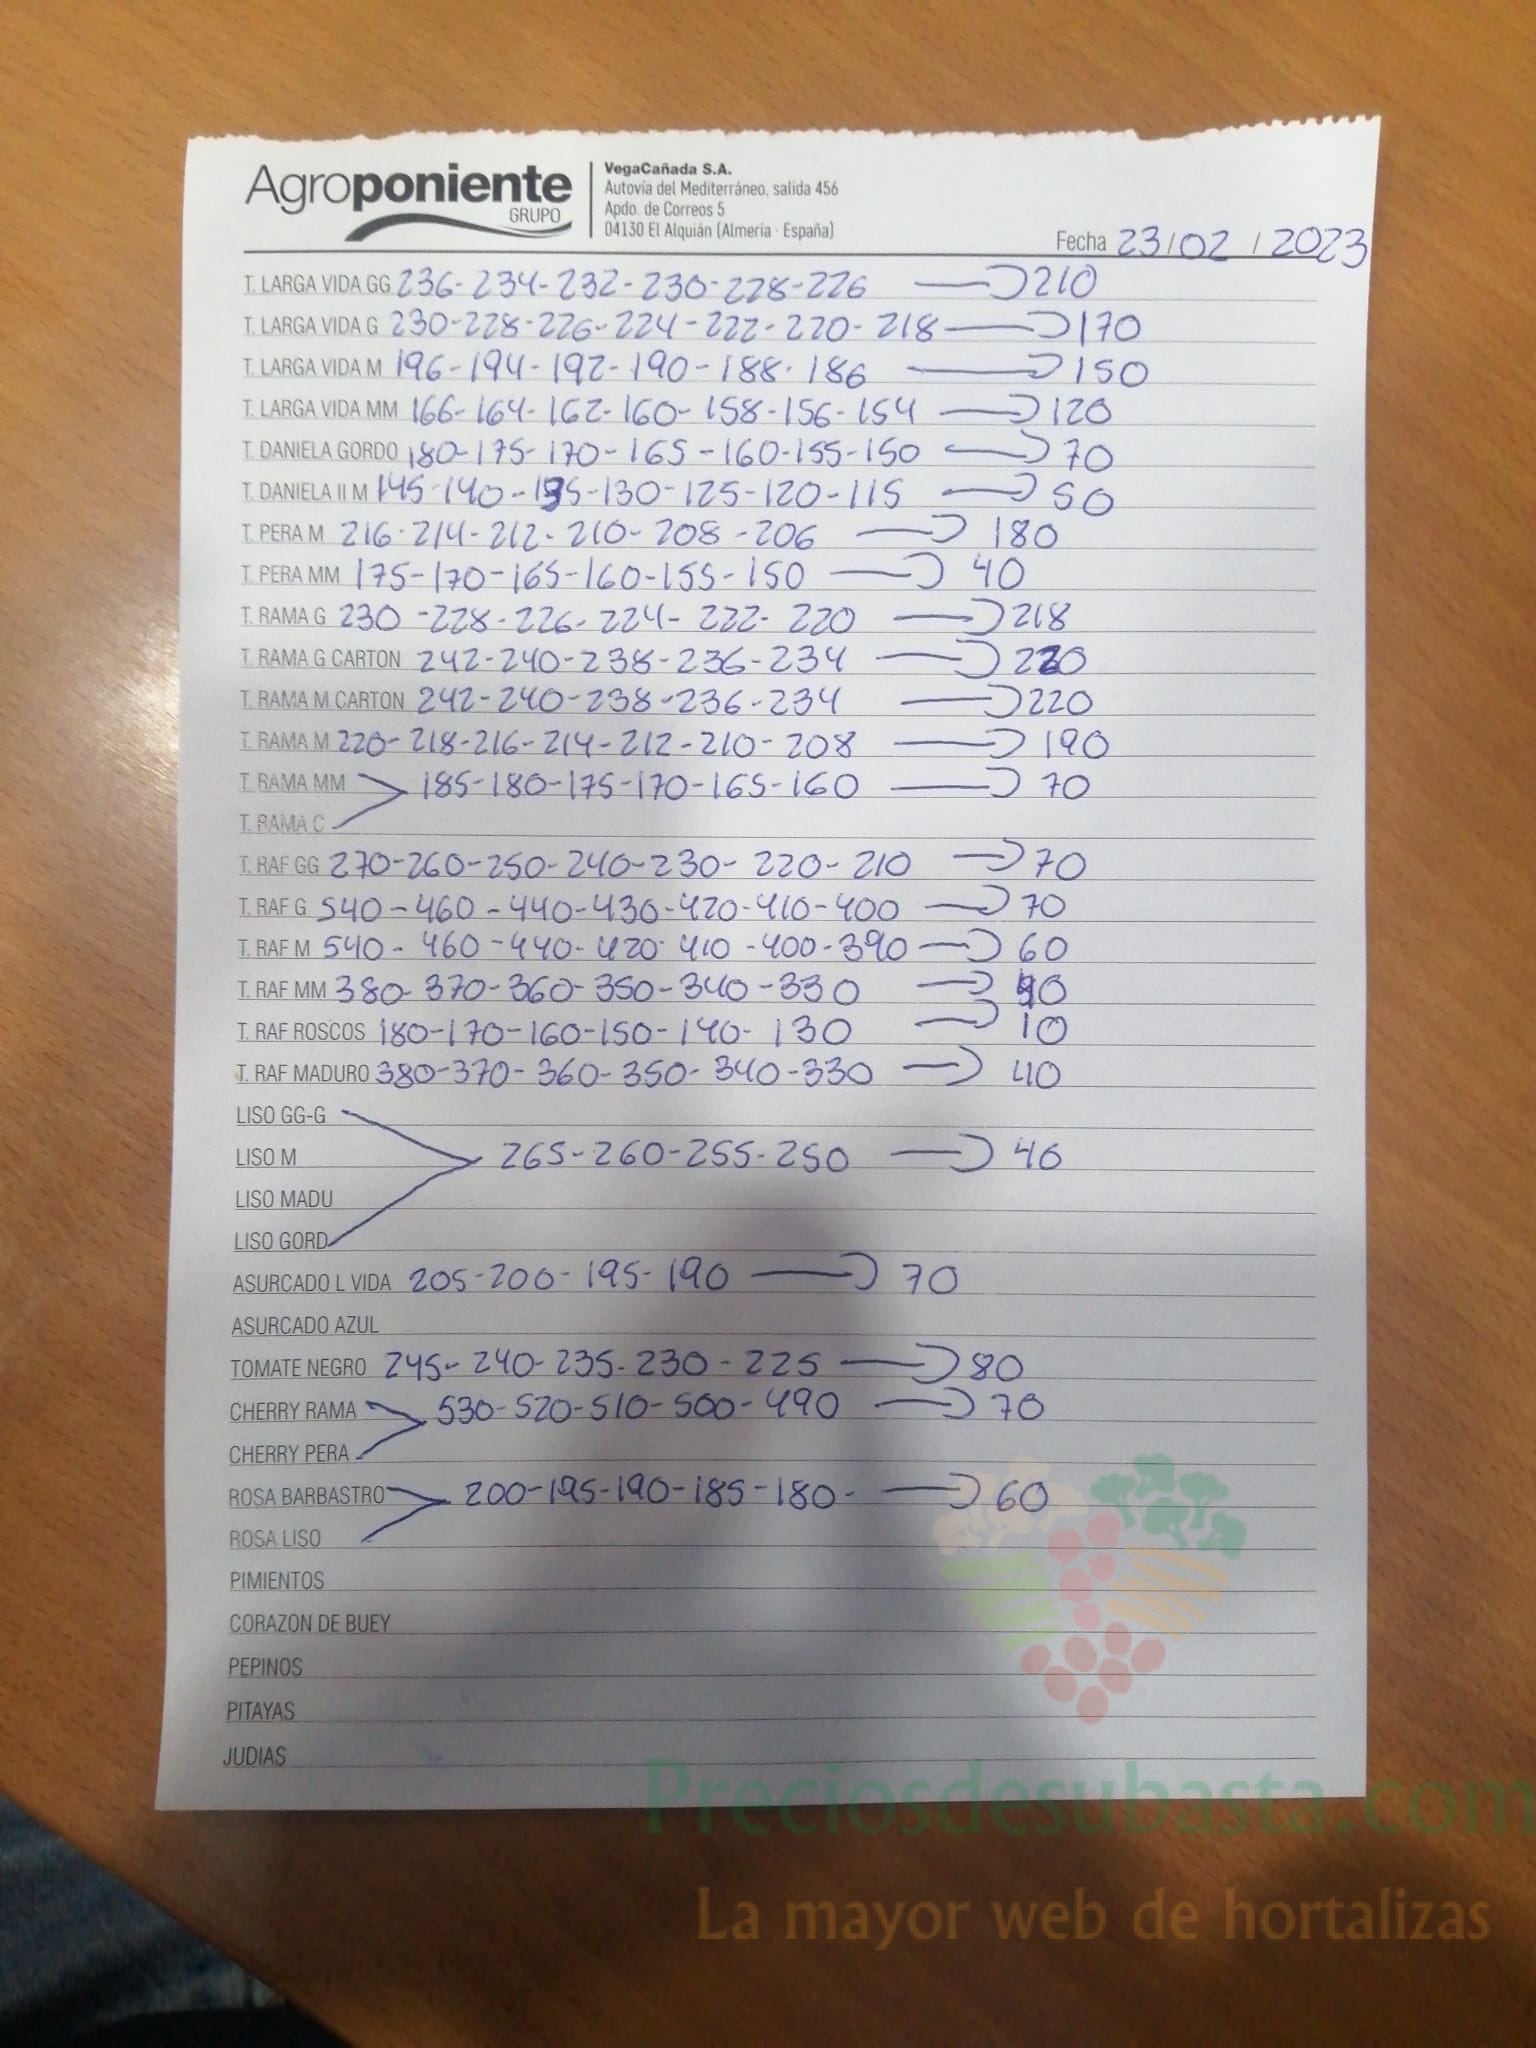 Agroponiente
GRUPO
VegaCañada S.A.
Autovía del Mediterráneo, salida 456
Apdo. de Correos 5
04130 El Alquián (Almería - España)
Fecha 23/02/2023
T. LARGA VIDA GG 236-234-232-230-228-226 210
T. LARGA VIDA G 230-228-226-224-222-220-218 170
T. LARGA VIDA M 196-194-192-190-188-186 150
T. LARGA VIDA MM 166-164-162-160-158-156-154 120
T. DANIELA GORDO 180-175-170-165-160-155-150 70
T. DANIELA II M 145-140-135-130-125-120-115 50
T. PERA M 216-214-212-210-208-206 180
T. PERA MM 175-170-165-160-155-150 40
T. RAMA G 230-228-226-224-222-220 218
T. RAMA G CARTON 242-240-238-236-234 220
T. RAMA M CARTON 242-240-238-236-234 220
T. RAMA M 220-218-216-214-212-210-208 190
T. RAMA MM 185-180-175-170-165-160 70
T. RAMA C
T. RAF GG 270-260-250-240-230-220-210 70
T. RAF G 540-460-440-430-420-410-400 70
T. RAF M 540-460-440-420-410-400-390 60
T. RAF MM 380-370-360-350-340-330
T. RAF ROSCOS 180-170-160-150-140-130 10
T. RAF MADURO 380-370-360-350-340-330 40
LISO GG-G
LISO M 265-260-255-250 40
LISO MADU
LISO GORD
ASURCADO L VIDA 205-200-195-190 70
ASURCADO AZUL
TOMATE NEGRO 245-240-235-230-225 80
CHERRY RAMA 530-520-510-500-490 70
CHERRY PERA
ROSA BARBASTRO 200-195-190-185-180- 60
ROSA LISO
PIMIENTOS
CORAZON DE BUEY
PEPINOS
PITAYAS
JUDIAS
Preciosdesubasta.com
La mayor web de hortalizas